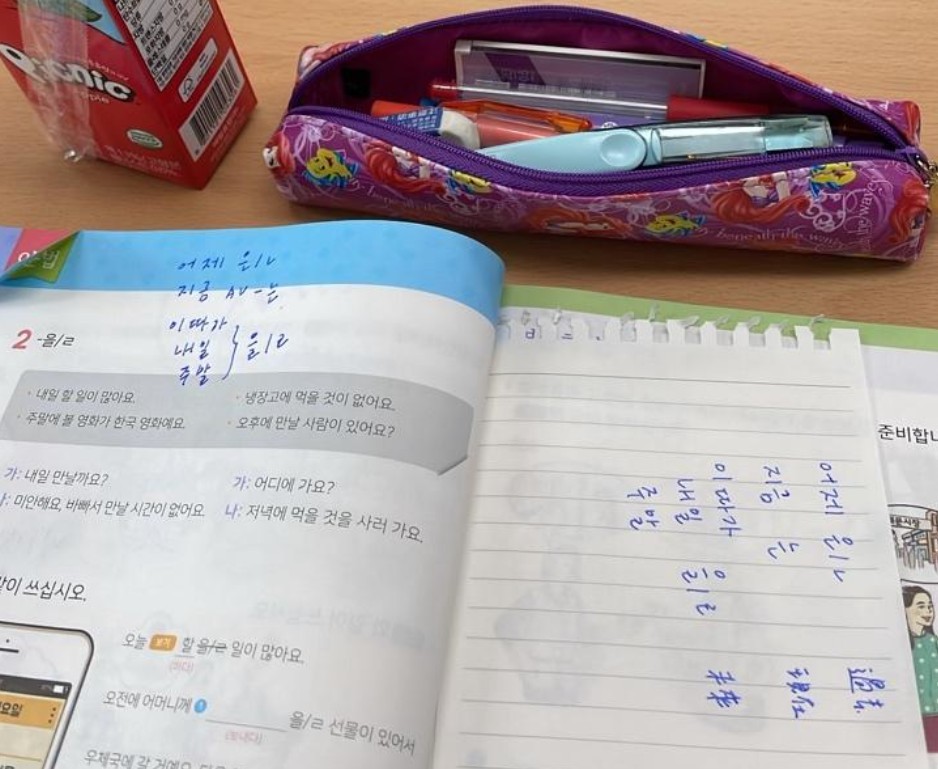 Picnic
beneath the waves
어제 은/ㄴ
지금 AV-는
이따가
내일 } 을/ㄹ
주말
2 -을/ㄹ
· 내일 할 일이 많아요.
· 냉장고에 먹을 것이 없어요.
· 주말에 볼 영화가 한국 영화예요.
· 오후에 만날 사람이 있어요?
가: 내일 만날까요?
가: 어디에 가요?
미안해요, 바빠서 만날 시간이 없어요.
나: 저녁에 먹을 것을 사러 가요.
같이 쓰십시오.
오늘 보기 할 을/ㄹ 일이 많아요.
(하다)
오전에 어머니께 1 ________ 을/ㄹ 선물이 있어서
(보내다)
우체국에 갈 거예요.
요일
어제 은/ㄴ 過去
지금 는 現在
이따가
내일 을/ㄹ 未來
주말
준비합니